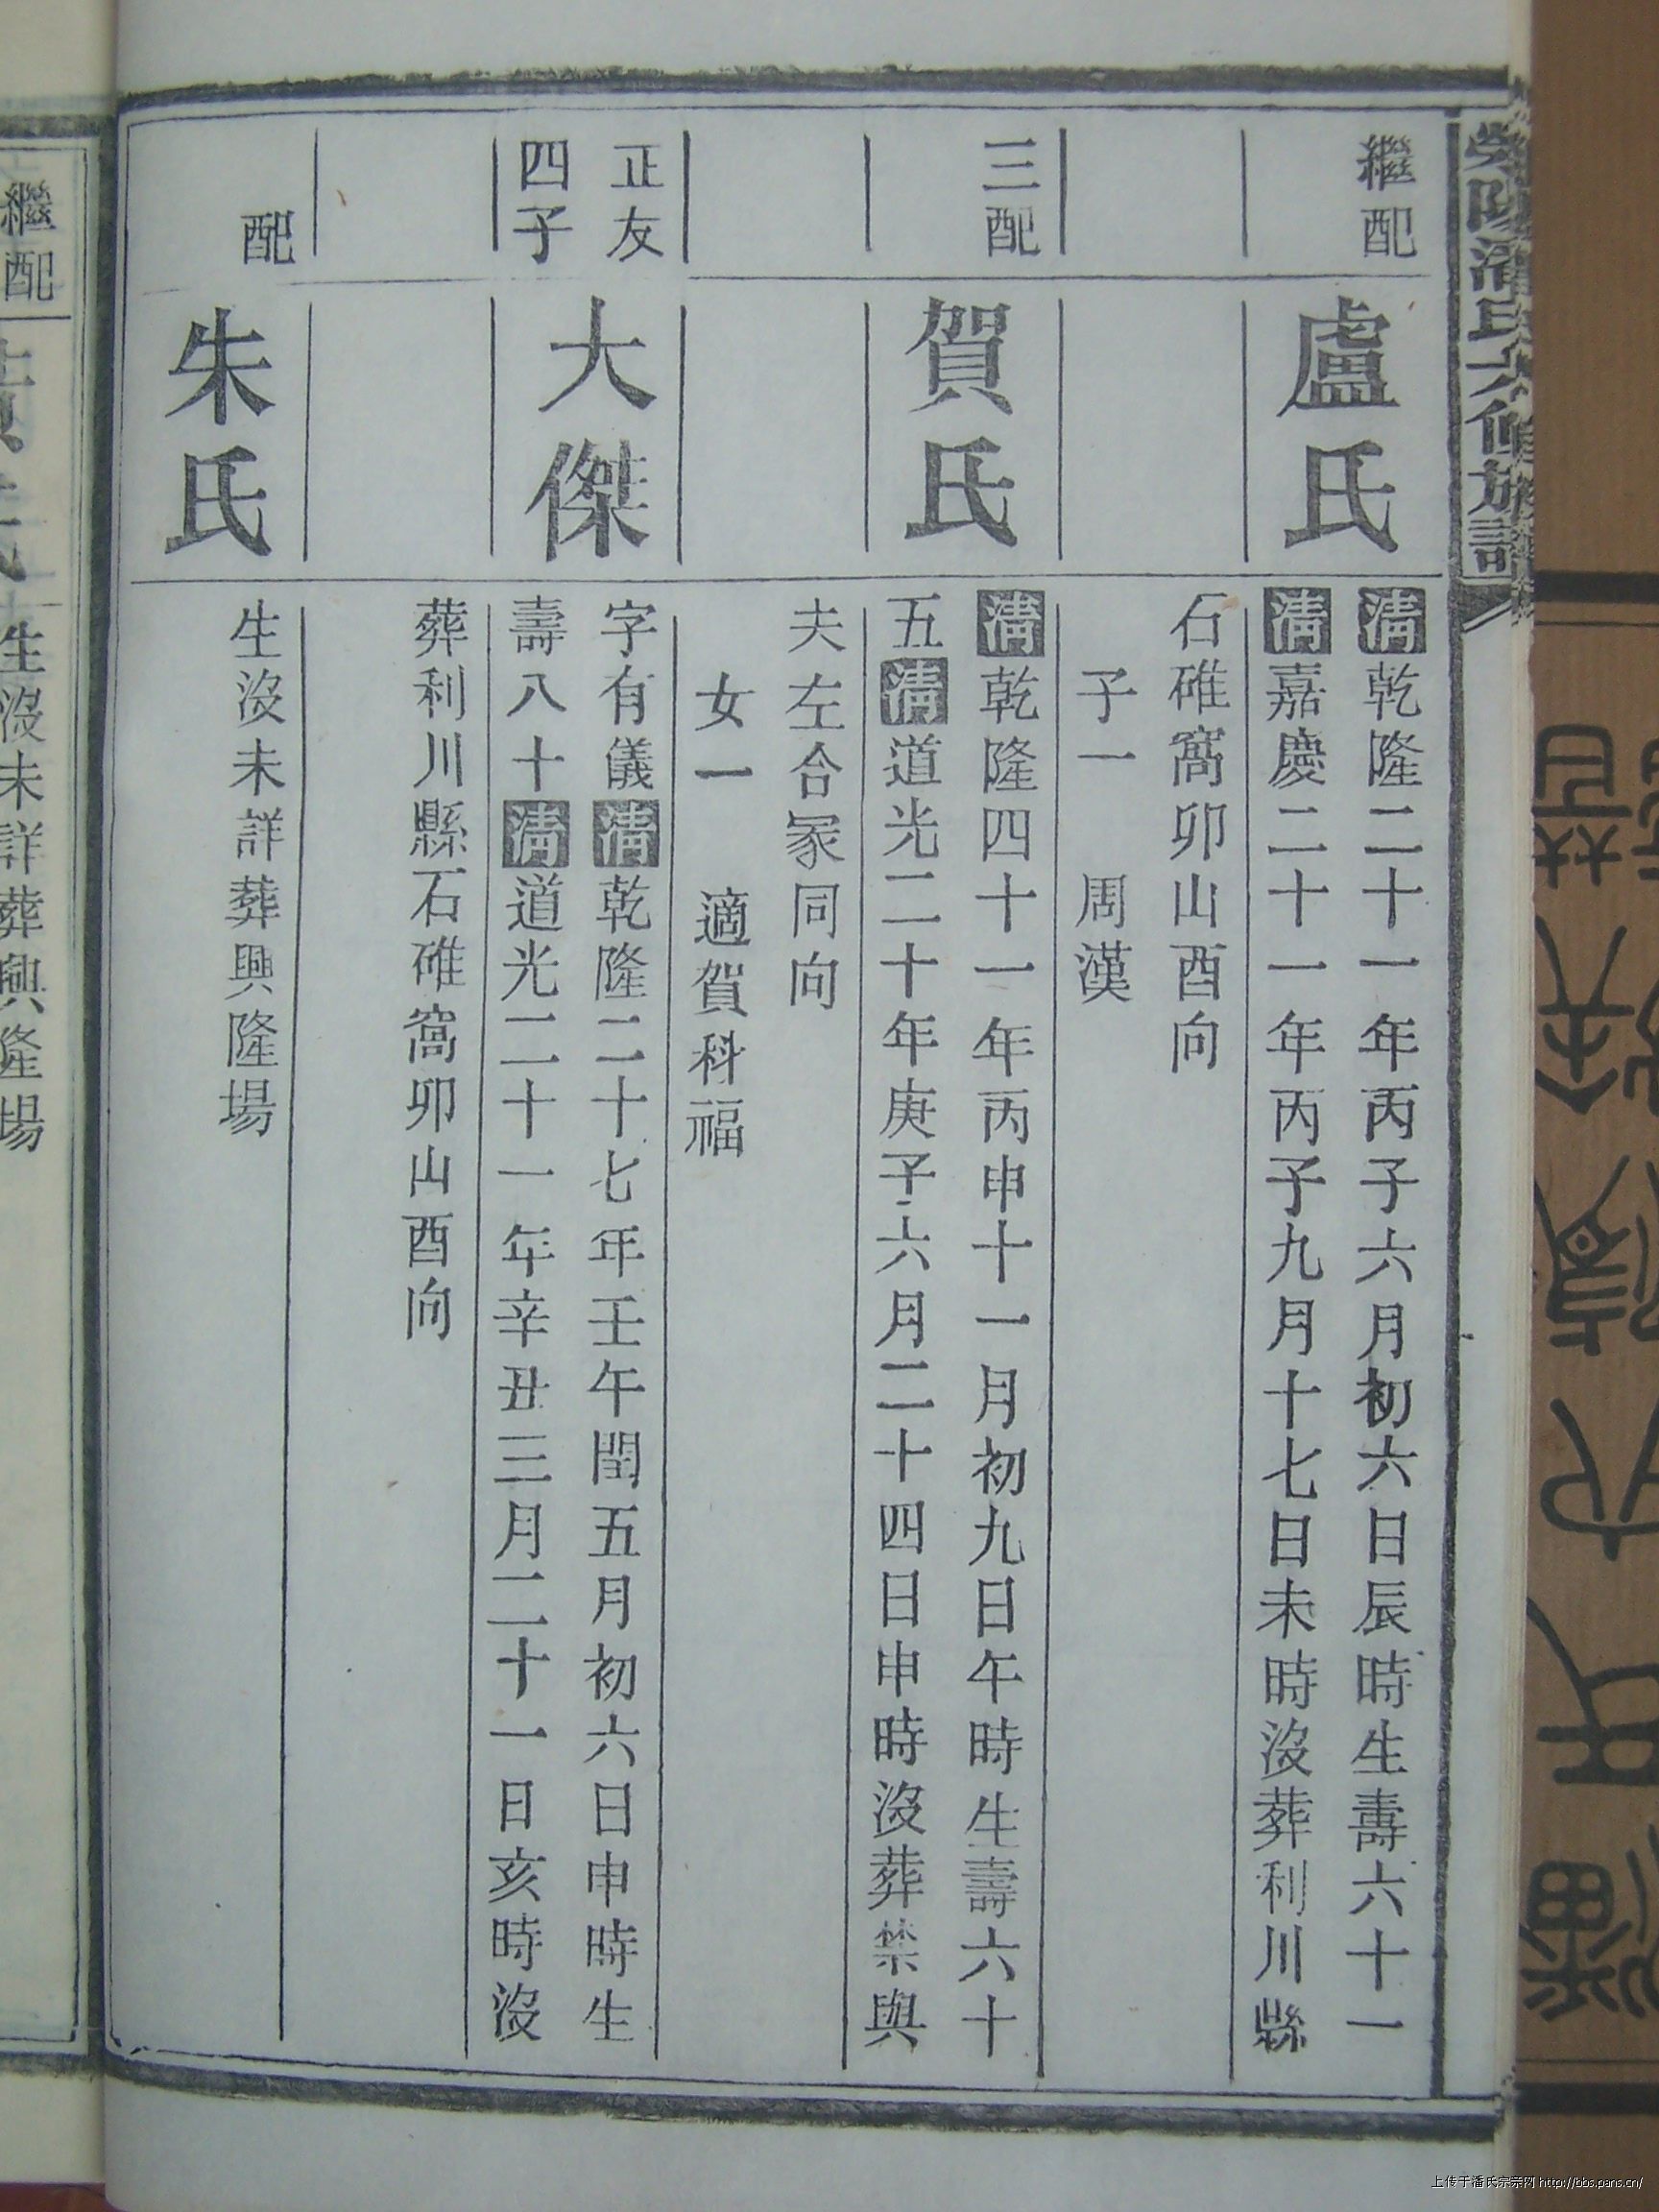 滎陽潘氏六修族譜
繼配
盧氏
清乾隆二十一年丙子六月初六日辰時生壽六十一
清嘉慶二十一年丙子九月十七日未時沒葬利川縣
石碓窩卯山酉向
子一 周漢
三配
賀氏
清乾隆四十一年丙申十一月初九日午時生壽六十
五清道光二十年庚子六月二十四日申時沒葬禁與
夫左合冢同向
女一 適賀科福
正友
四子
大傑
字有儀清乾隆二十七年壬午閏五月初六日申時生
壽八十清道光二十一年辛丑三月二十一日亥時沒
葬利川縣石碓窩卯山酉向
配
朱氏
生沒未詳葬興隆場
繼配
生沒未詳葬興隆場
上传于潘氏宗亲网 http://bbs.pans.cn/